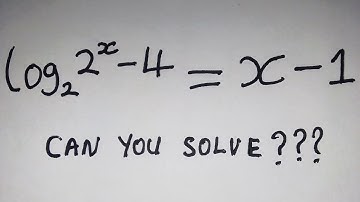 log₂ 2ˣ - 4 = x - 1
CAN YOU SOLVE ???